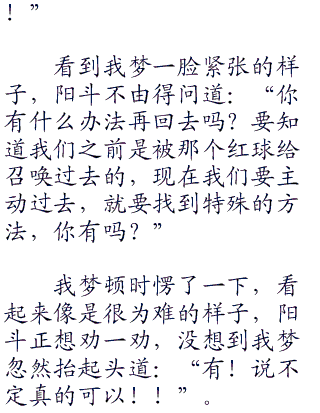 ！”
看到我梦一脸紧张的样
子，阳斗不由得问道：“你
有什么办法再回去吗？要知
道我们之前是被那个红球给
召唤过去的，现在我们要主
动过去，就要找到特殊的方
法，你有吗？”
我梦顿时愣了一下，看
起来像是很为难的样子，阳
斗正想劝一劝，没想到我梦
忽然抬起头道：“有！说不
定真的可以！！”。